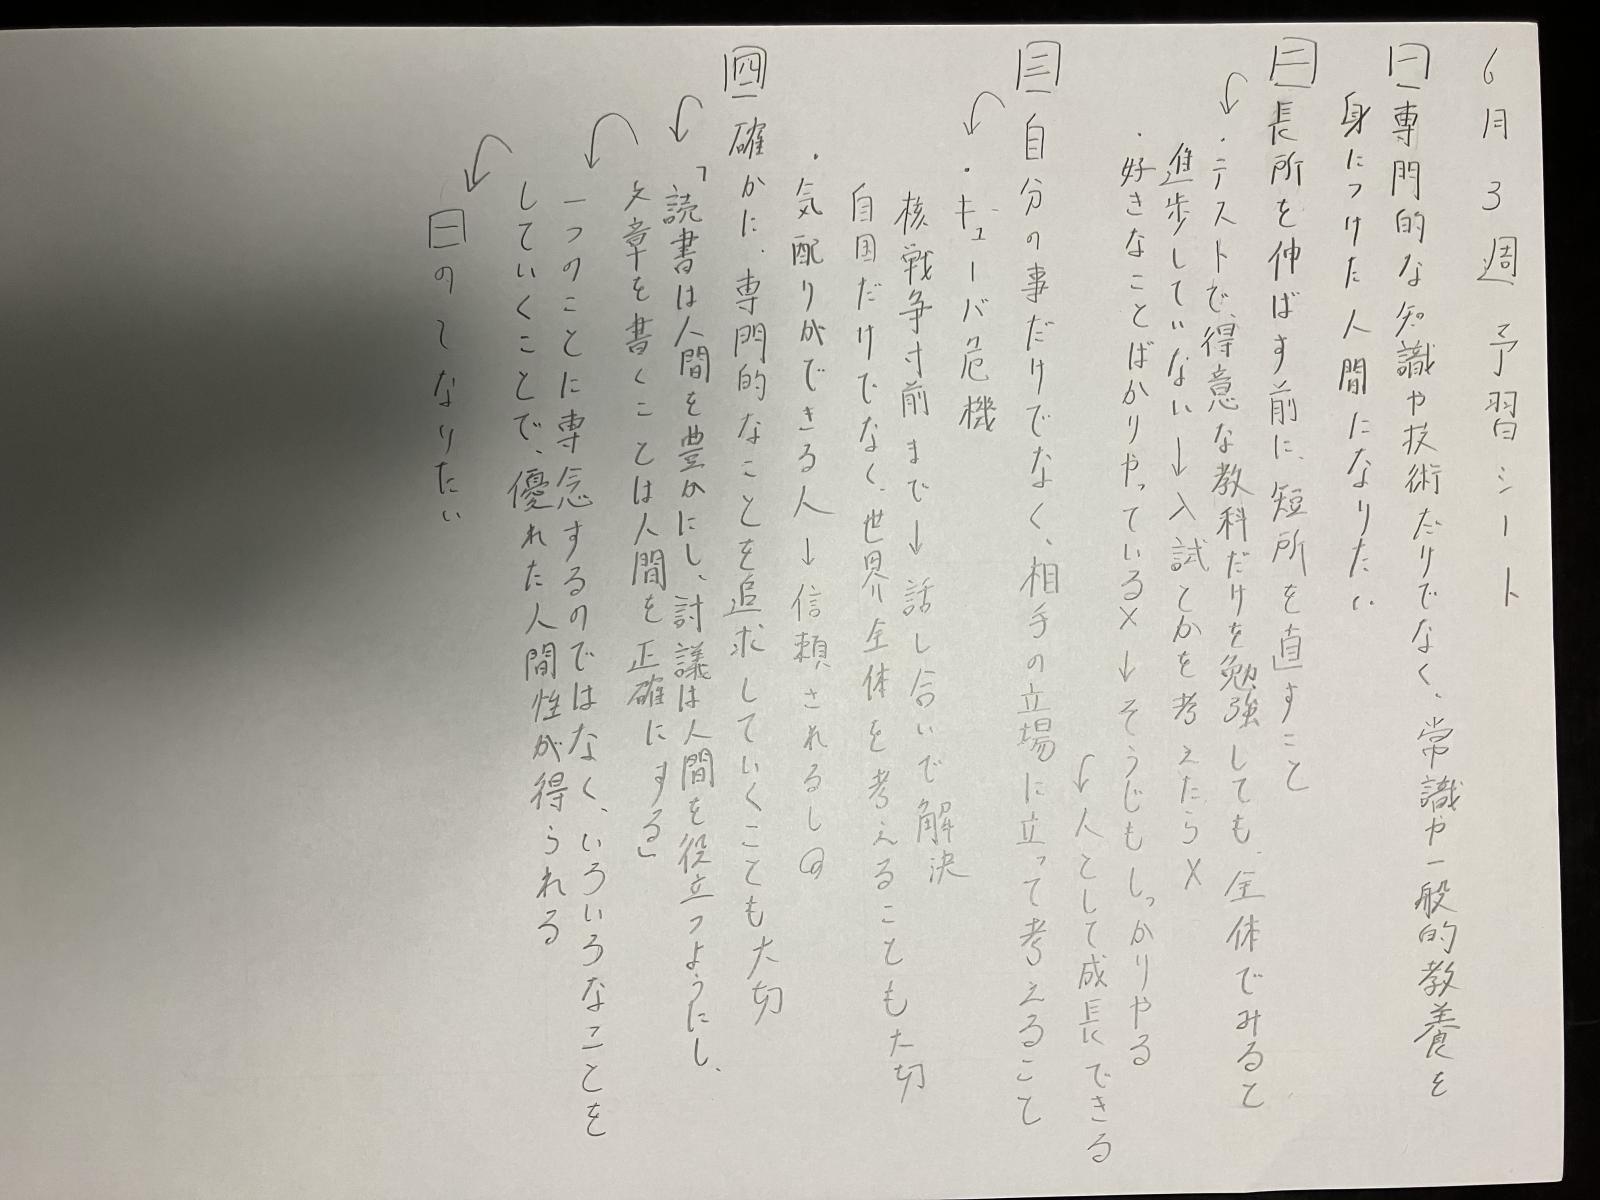 6月3週 予習シート
一 専門的な知識や技術だけでなく、常識や一般的教養を
身につけた人間になりたい
二 長所を伸ばす前に、短所を直すこと
・テストで、得意な教科だけを勉強しても、全体でみると
進歩していない→入試とかを考えたら×
・好きなことばかりやっている×→そうじもしっかりやる
→人として成長できる
三 自分の事だけでなく、相手の立場に立って考えること
・キューバ危機
核戦争寸前まで→話し合いで解決
自国だけでなく、世界全体を考えることも大切
・気配りができる人→信頼されるし
四 確かに、専門的なことを追求していくことも大切
「読書は人間を豊かにし、討議は人間を役立つようにし、
文章を書くことは人間を正確にする」
一つのことに専念するのではなく、いろいろなことを
していくことで、優れた人間性が得られる
一のてなりたい